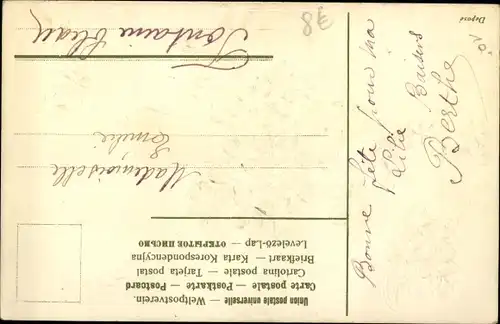 Union postale universelle — Weltpostverein.
Carte postale — Postkarte — Postcard
Cartolina postale — Tarjeta postal
Briefkaart — Karta Korespondencyjna
Levelező-Lap — ОТКРЫТОЕ ПИСЬМО
Mademoiselle
Emilie
Fontaine
Bonne fête pour ma
Baisers
Berthe
Déposé
8E